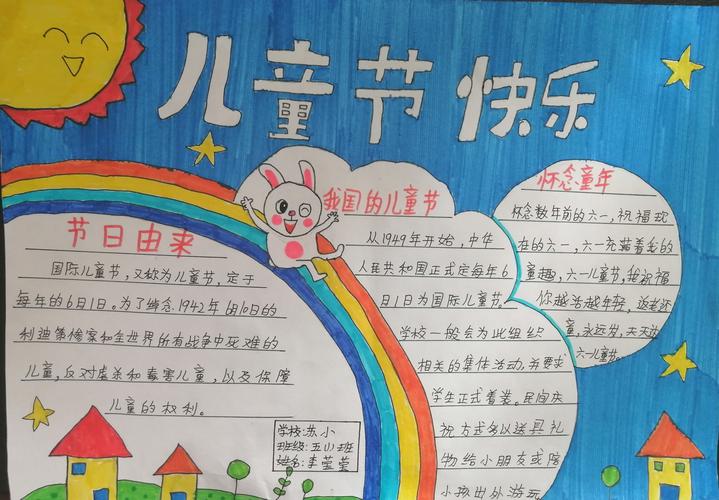 儿童节 快乐
节日由来
国际儿童节,又称为儿童节,定于
每年的6月1日。为了悼念1942年6月10日的
利迪策惨案和全世界所有战争中死难的
儿童,反对虐杀和毒害儿童,以及保障
儿童的权利。
学校:苏小
班级:五(1)班
姓名:李莹莹
我国的儿童节
从1949年开始,中华
人民共和国正式定每年6
月1日为国际儿童节。
学校一般会为此组织
相关的集体活动,并要求
学生正式着装。民间庆
祝方式多以送具礼
物给小朋友或陪
小孩出外游玩
怀念童年
怀念数年前的六一,祝福现
在的六一,六一充满着我的
童趣,六一儿童节,我祝福
你越活越年轻,返老还
童,永远发,天天过
六一儿童节。